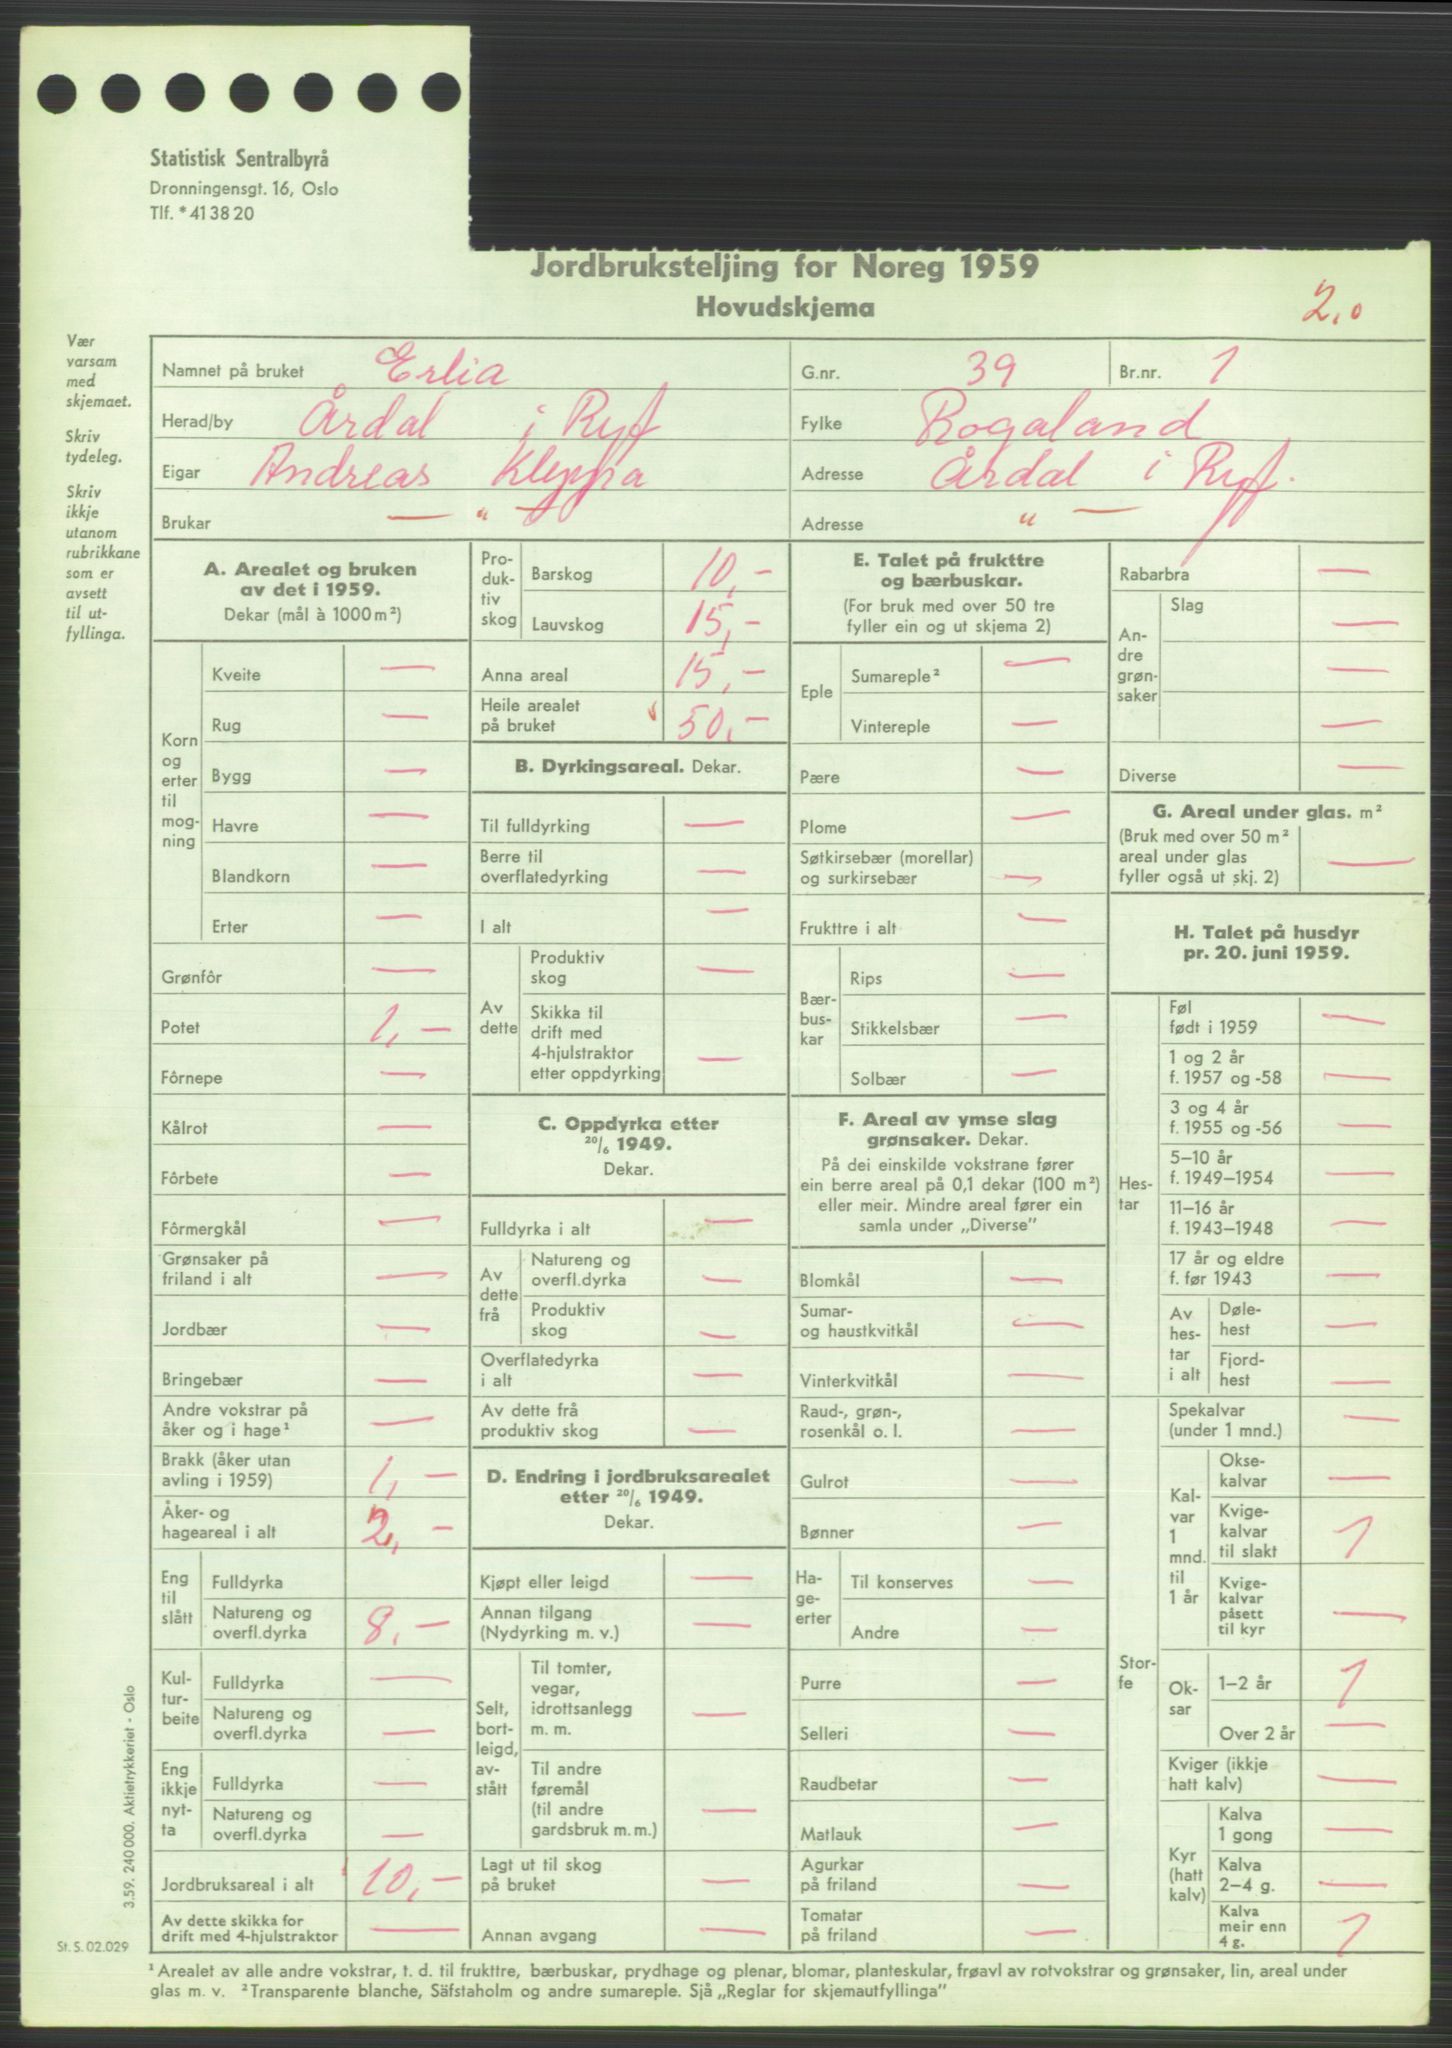 Statistisk Sentralbyrå
Dronningensgt. 16, Oslo
Tlf. *41 38 20
Jordbruksteljing for Noreg 1959
Hovudskjema
2,0
Vær
varsam
med
skjemaet.
Skriv
tydeleg.
Skriv
ikkje
utanom
rubrikkane
som er
avsett
til ut-
fyllinga.
Namnet på bruket Erlia G.nr. 39 Br.nr. 1
Herad/by Årdal i Ryf Fylke Rogaland
Eigar Andreas Kleppa Adresse Årdal i Ryf.
Brukar — " — Adresse " —
A. Arealet og bruken
av det i 1959.
Dekar (mål à 1000 m²)
Korn
og
erter
til
mog-
ning
Kveite —
Rug —
Bygg —
Havre —
Blandkorn —
Erter —
Grønfôr —
Potet 1,—
Fôrnepe —
Kålrot —
Fôrbete —
Fôrmergkål —
Grønsaker på
friland i alt —
Jordbær —
Bringebær —
Andre vokstrar på
åker og i hage¹ —
Brakk (åker utan
avling i 1959) 1,—
Åker- og
hageareal i alt 2,—
Eng
til
slått
Fulldyrka
Natureng og
overfl.dyrka 8,—
Kul-
tur-
beite
Fulldyrka —
Natureng og
overfl.dyrka —
Eng
ikkje
nyt-
ta
Fulldyrka —
Natureng og
overfl.dyrka —
Jordbruksareal i alt 10,—
Av dette skikka for
drift med 4-hjulstraktor —
Pro-
duk-
tiv
skog
Barskog 10,—
Lauvskog 15,—
Anna areal 15,—
Heile arealet
på bruket 50,—
B. Dyrkingsareal. Dekar.
Til fulldyrking —
Berre til
overflatedyrking —
I alt —
Av
dette
Produktiv
skog —
Skikka til
drift med
4-hjulstraktor
etter oppdyrking —
C. Oppdyrka etter
20/6 1949.
Dekar.
Fulldyrka i alt —
Av
dette
frå
Natureng og
overfl.dyrka —
Produktiv
skog —
Overflatedyrka
i alt —
Av dette frå
produktiv skog —
D. Endring i jordbruksarealet
etter 20/6 1949.
Dekar.
Kjøpt eller leigd —
Annan tilgang
(Nydyrking m. v.) —
Selt,
bort-
leigd,
av-
stått
Til tomter,
vegar,
idrottsanlegg
m. m. —
Til andre
føremål
(til andre
gardsbruk m. m.) —
Lagt ut til skog
på bruket —
Annan avgang —
E. Talet på frukttre
og bærbuskar.
(For bruk med over 50 tre
fyller ein og ut skjema 2)
Eple
Sumareple² —
Vintereple —
Pære —
Plome —
Søtkirsebær (morellar)
og surkirsebær —
Frukttre i alt —
Bær-
bus-
kar
Rips —
Stikkelsbær —
Solbær —
F. Areal av ymse slag
grønsaker. Dekar.
På dei einskilde vokstrane fører
ein berre areal på 0,1 dekar (100 m²)
eller meir. Mindre areal fører ein
samla under „Diverse”
Blomkål —
Sumar-
og haustkvitkål —
Vinterkvitkål —
Raud-, grøn-,
rosenkål o. l. —
Gulrot —
Bønner —
Ha-
ge-
erter
Til konserves —
Andre —
Purre —
Selleri —
Raudbetar —
Matlauk —
Agurkar
på friland —
Tomatar
på friland —
Rabarbra —
An-
dre
grøn-
saker
Slag —
—
—
Diverse —
G. Areal under glas. m²
(Bruk med over 50 m²
areal under glas
fyller også ut skj. 2) —
H. Talet på husdyr
pr. 20. juni 1959.
Hes-
tar
Føl
født i 1959 —
1 og 2 år
f. 1957 og -58 —
3 og 4 år
f. 1955 og -56 —
5–10 år
f. 1949–1954 —
11–16 år
f. 1943–1948 —
17 år og eldre
f. før 1943 —
Av
hes-
tar
i alt
Døle-
hest —
Fjord-
hest —
Stor-
fe
Spekalvar
(under 1 mnd.) —
Kal-
var
1
mnd.
til
1 år
Okse-
kalvar —
Kvige-
kalvar
til slakt 1
Kvige-
kalvar
påsett
til kyr —
Ok-
sar
1–2 år 1
Over 2 år —
Kviger (ikkje
hatt kalv) —
Kyr
(hatt
kalv)
Kalva
1 gong —
Kalva
2–4 g. —
Kalva
meir enn
4 g. 1
3.59. 240 000. Aktietrykkeriet - Oslo
St. S. 02.029
¹ Arealet av alle andre vokstrar, t. d. til frukttre, bærbuskar, prydhage og plenar, blomar, planteskular, frøavl av rotvokstrar og grønsaker, lin, areal under
glas m. v. ² Transparente blanche, Säfstaholm og andre sumareple. Sjå „Reglar for skjemautfyllinga”